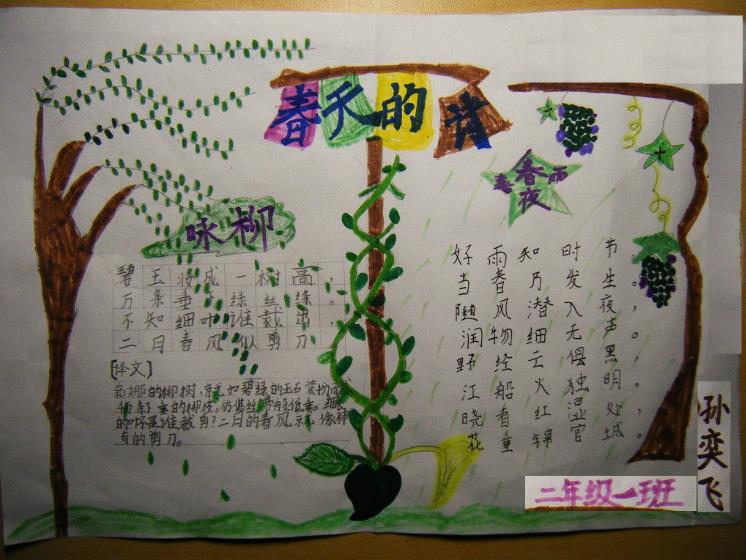 春天的诗
咏柳
碧玉妆成一树高，
万条垂 绿丝绦。
不知细叶谁裁出，
二月春风似剪刀
[译文]
的柳树， 如碧绿的玉石装扮而
垂的柳枝，
的 是谁裁剪？二月的春风 像神
奇的剪刀。
春夜喜雨
好雨知时节，
当春乃发生。
随风潜入夜，
润物细无声。
野经云俱黑，
江船火独明。
晓看红湿处，
花重锦官城。
二年级一班
孙奕飞